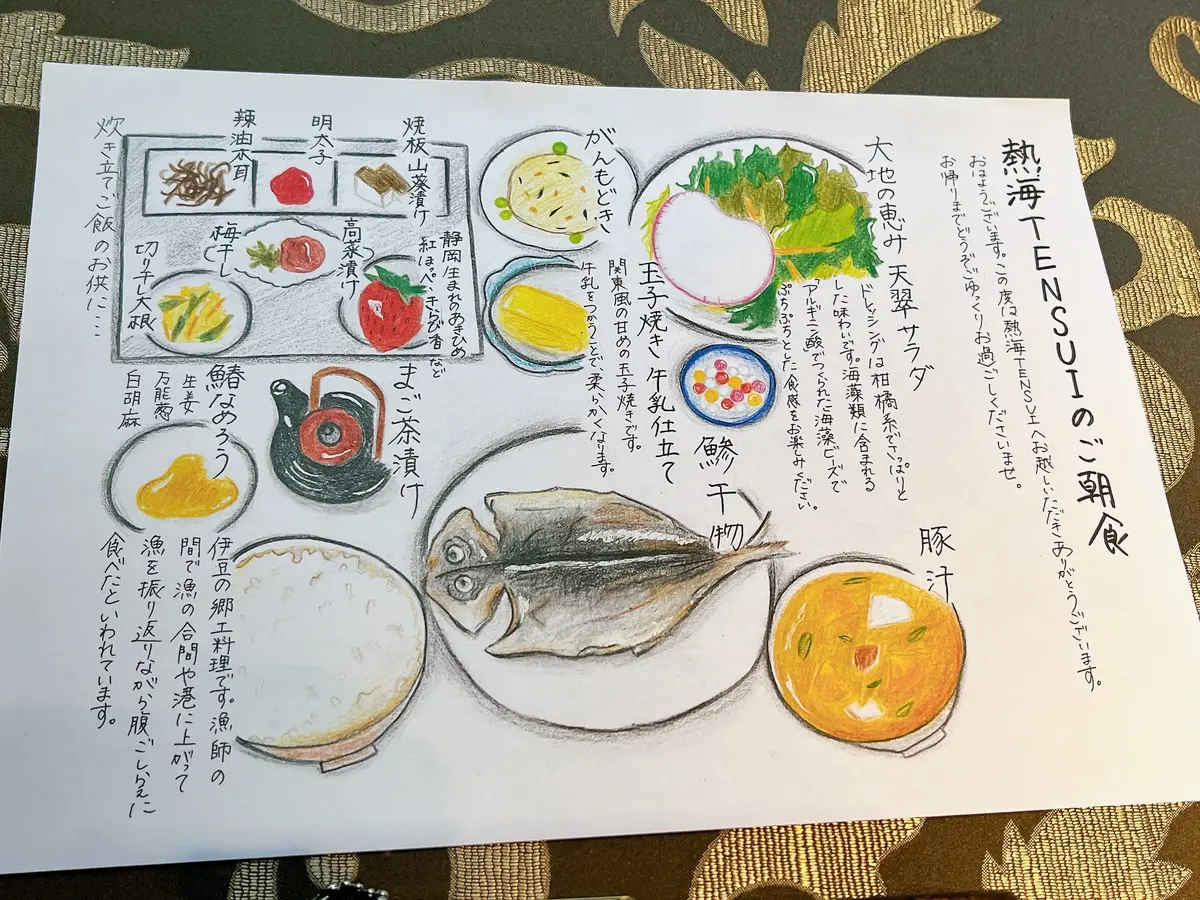 熱海TENSUIのご朝食
おはようございます。この度は熱海TENSUIへお越しいただきありがとうございます。
お帰りまでどうぞごゆっくりお過ごしくださいませ。
大地の恵み 天翠サラダ
ドレッシングは柑橘系でさっぱりと
した味わいです。海藻類に含まれる
「アルギニン酸」でつくられた海藻ビーズで
ぷちぷちとした食感をお楽しみください。
豚汁
鯵干物
がんもどき
玉子焼き 牛乳仕立て
関東風の甘めの玉子焼きです。
牛乳をつかうことで、柔らかくなります。
焼板山葵漬け
明太子
辣油木耳
静岡生まれのあきひめ
紅ほっぺ・きらぴ香など
高菜漬け
梅干し
切り干し大根
炊き立てご飯のお供に…
まご茶漬け
鰆なめろう
生姜
万能葱
白胡麻
伊豆の郷土料理です。漁師の
間で漁の合間や港に上がって
漁を振り返りながら腹ごしらえに
食べたといわれています。